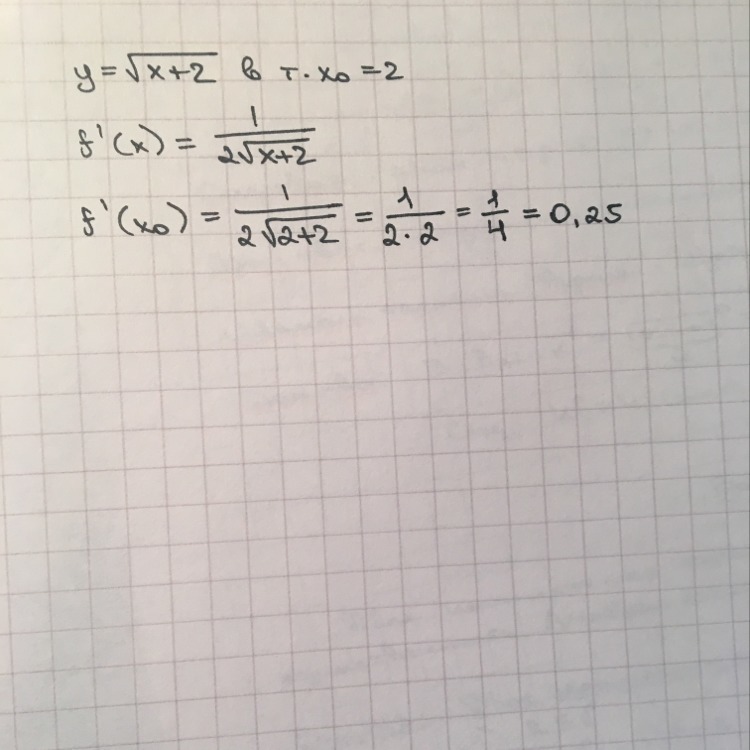 y = √(x+2) в т. x₀ = 2
f'(x) = 1/(2√(x+2))
f'(x₀) = 1/(2√(2+2)) = 1/(2·2) = 1/4 = 0,25